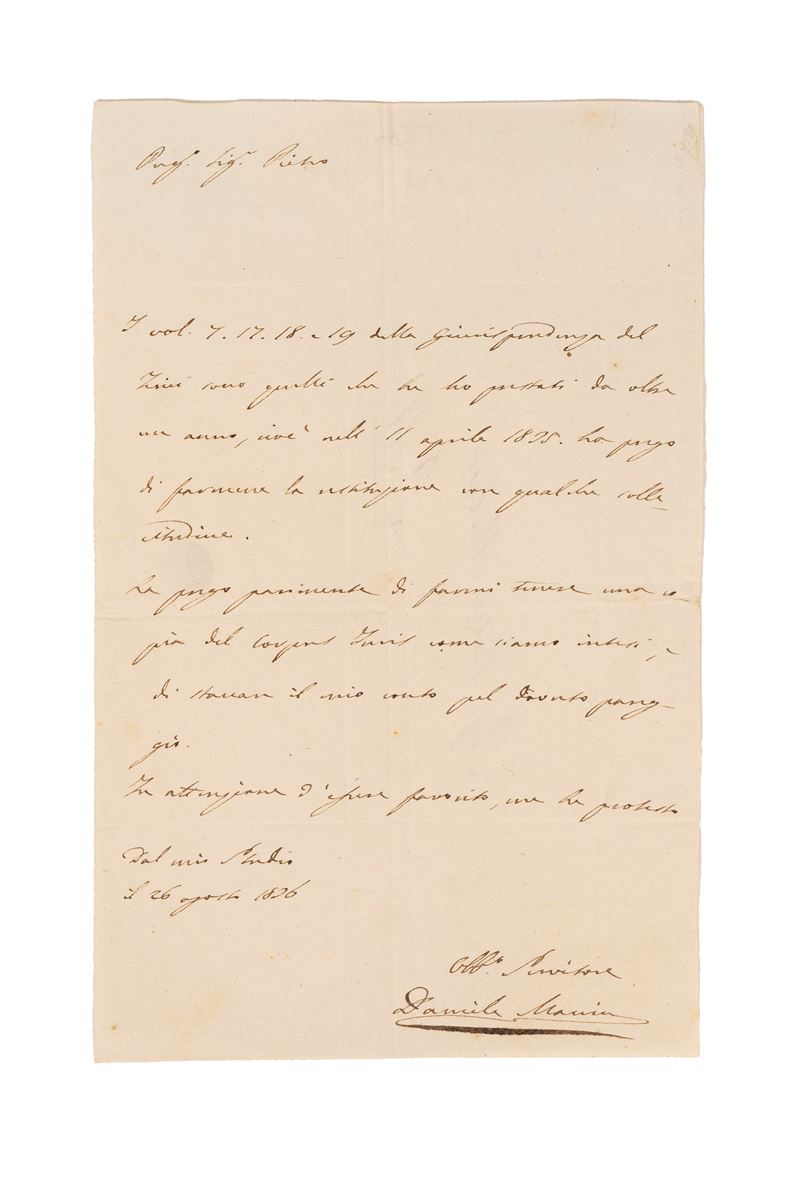 Preg.º Sig.r Pietro
I vol. 7. 17. 18. e 19 della Giurisprudenza del
Zini sono quelli che Le ho prestati da oltre
un anno, cioè nell' 11 aprile 1835. La prego
di farmene la restituzione con qualche solle-
citudine.
La prego parimente di farmi tenere una co-
pia del Corpus Juris come siamo intesi, e
di staccare il mio conto pel dovuto pareg-
gio.
In attenzione d'essere favorito, me Le protesto
Dal mio Studio
il 26 agosto 1836
Obb.o Servitore
Daniele Manin